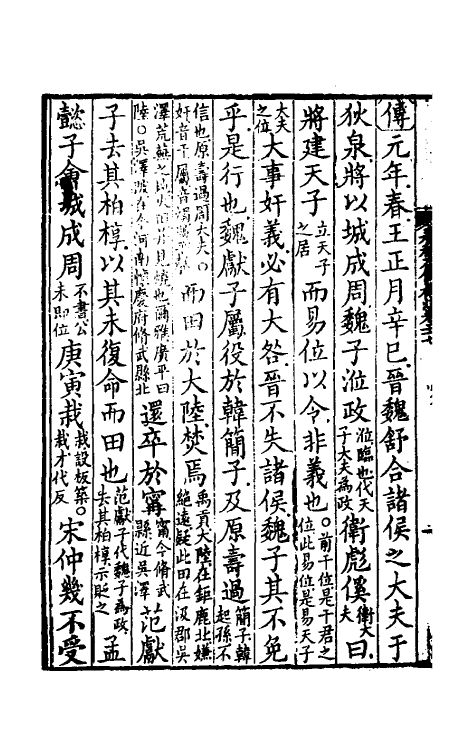 傳元年春王正月辛巳晉魏舒合諸侯之大夫于
狄泉將以城成周魏子涖政涖臨也代天子大夫為政衛彪傒衛大夫曰
將建天子立天子之居而易位以令非義也○前干位是干君之位此易位是易天子
大夫之位大事奸義必有大咎晉不失諸侯魏子其不免
乎是行也魏獻子屬役於韓簡子及原壽過簡子韓起孫不
信也原壽過周大夫○奸音干屬音燭而田於大陸焚焉禹貢大陸在鉅鹿北嫌絶遠疑此田在汲郡吳
澤荒蕪之地火田見燒也爾雅廣平曰陸○吳澤陂在今河南懷慶府修武縣北還卒於甯甯今修武縣近吳澤范獻
子去其柏椁以其未復命而田也范獻子代魏子為政去其柏椁示貶之孟
懿子會城成周不書公未即位庚寅栽栽設板築○栽才代反宋仲幾不受